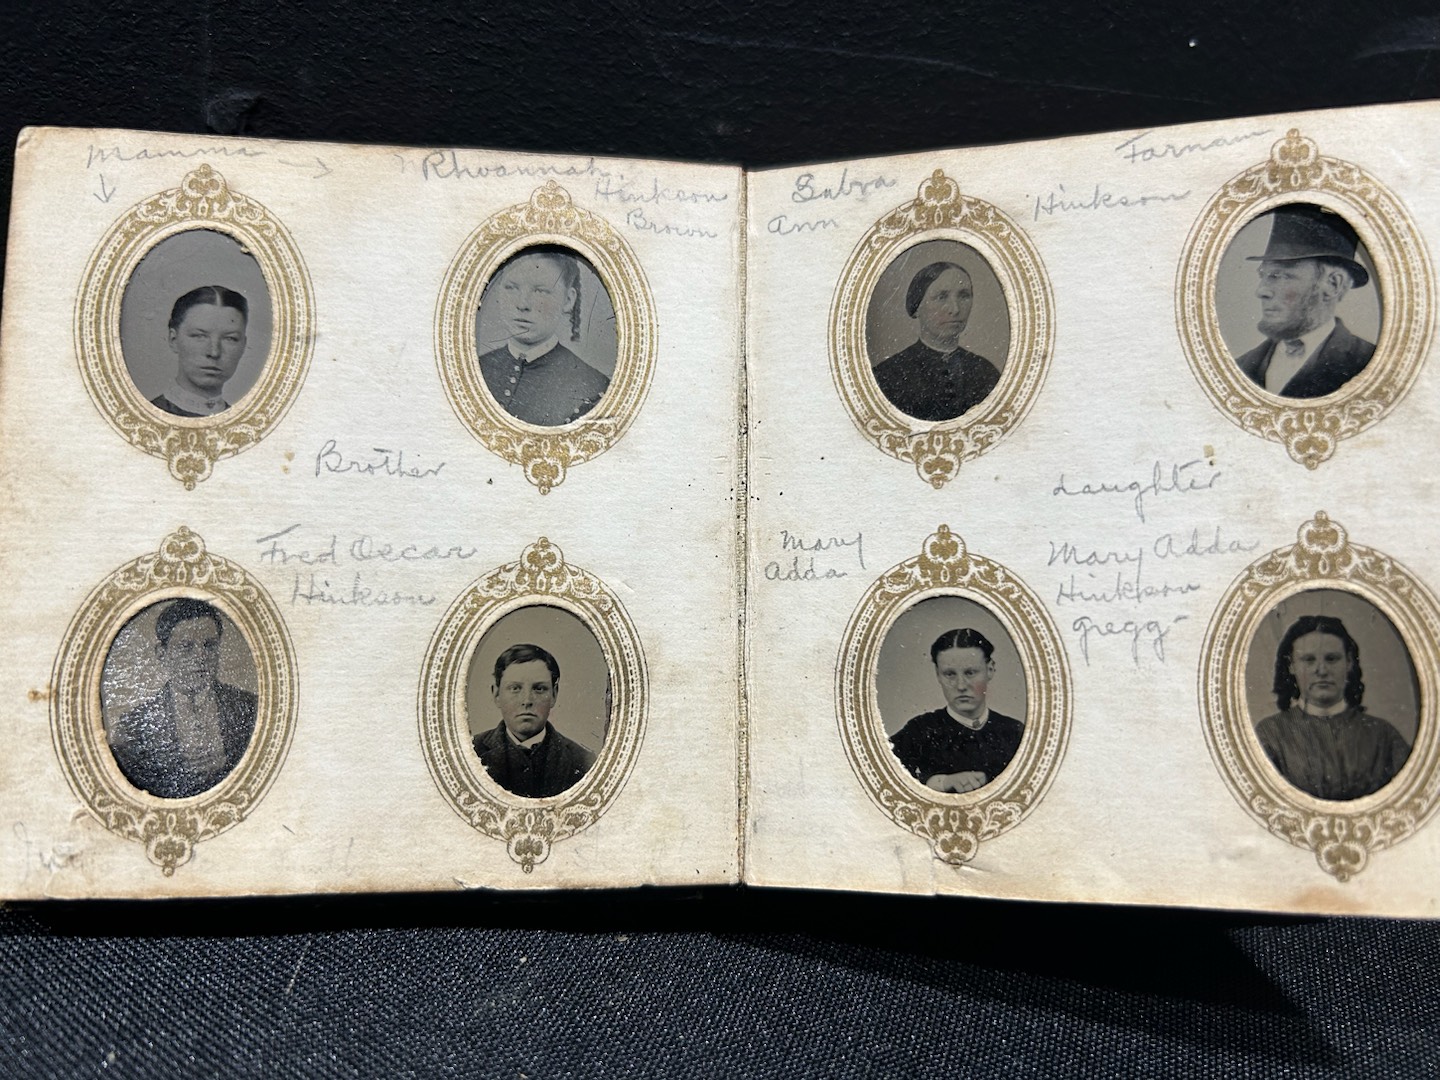 Mamma → Rhoannah
Hinkson
Brown
Brother
Fred Oscar
Hinkson
Sabra
Ann
Farnam
Hinkson
daughter
Mary
Adda
Mary Adda
Hinkson
Gregg